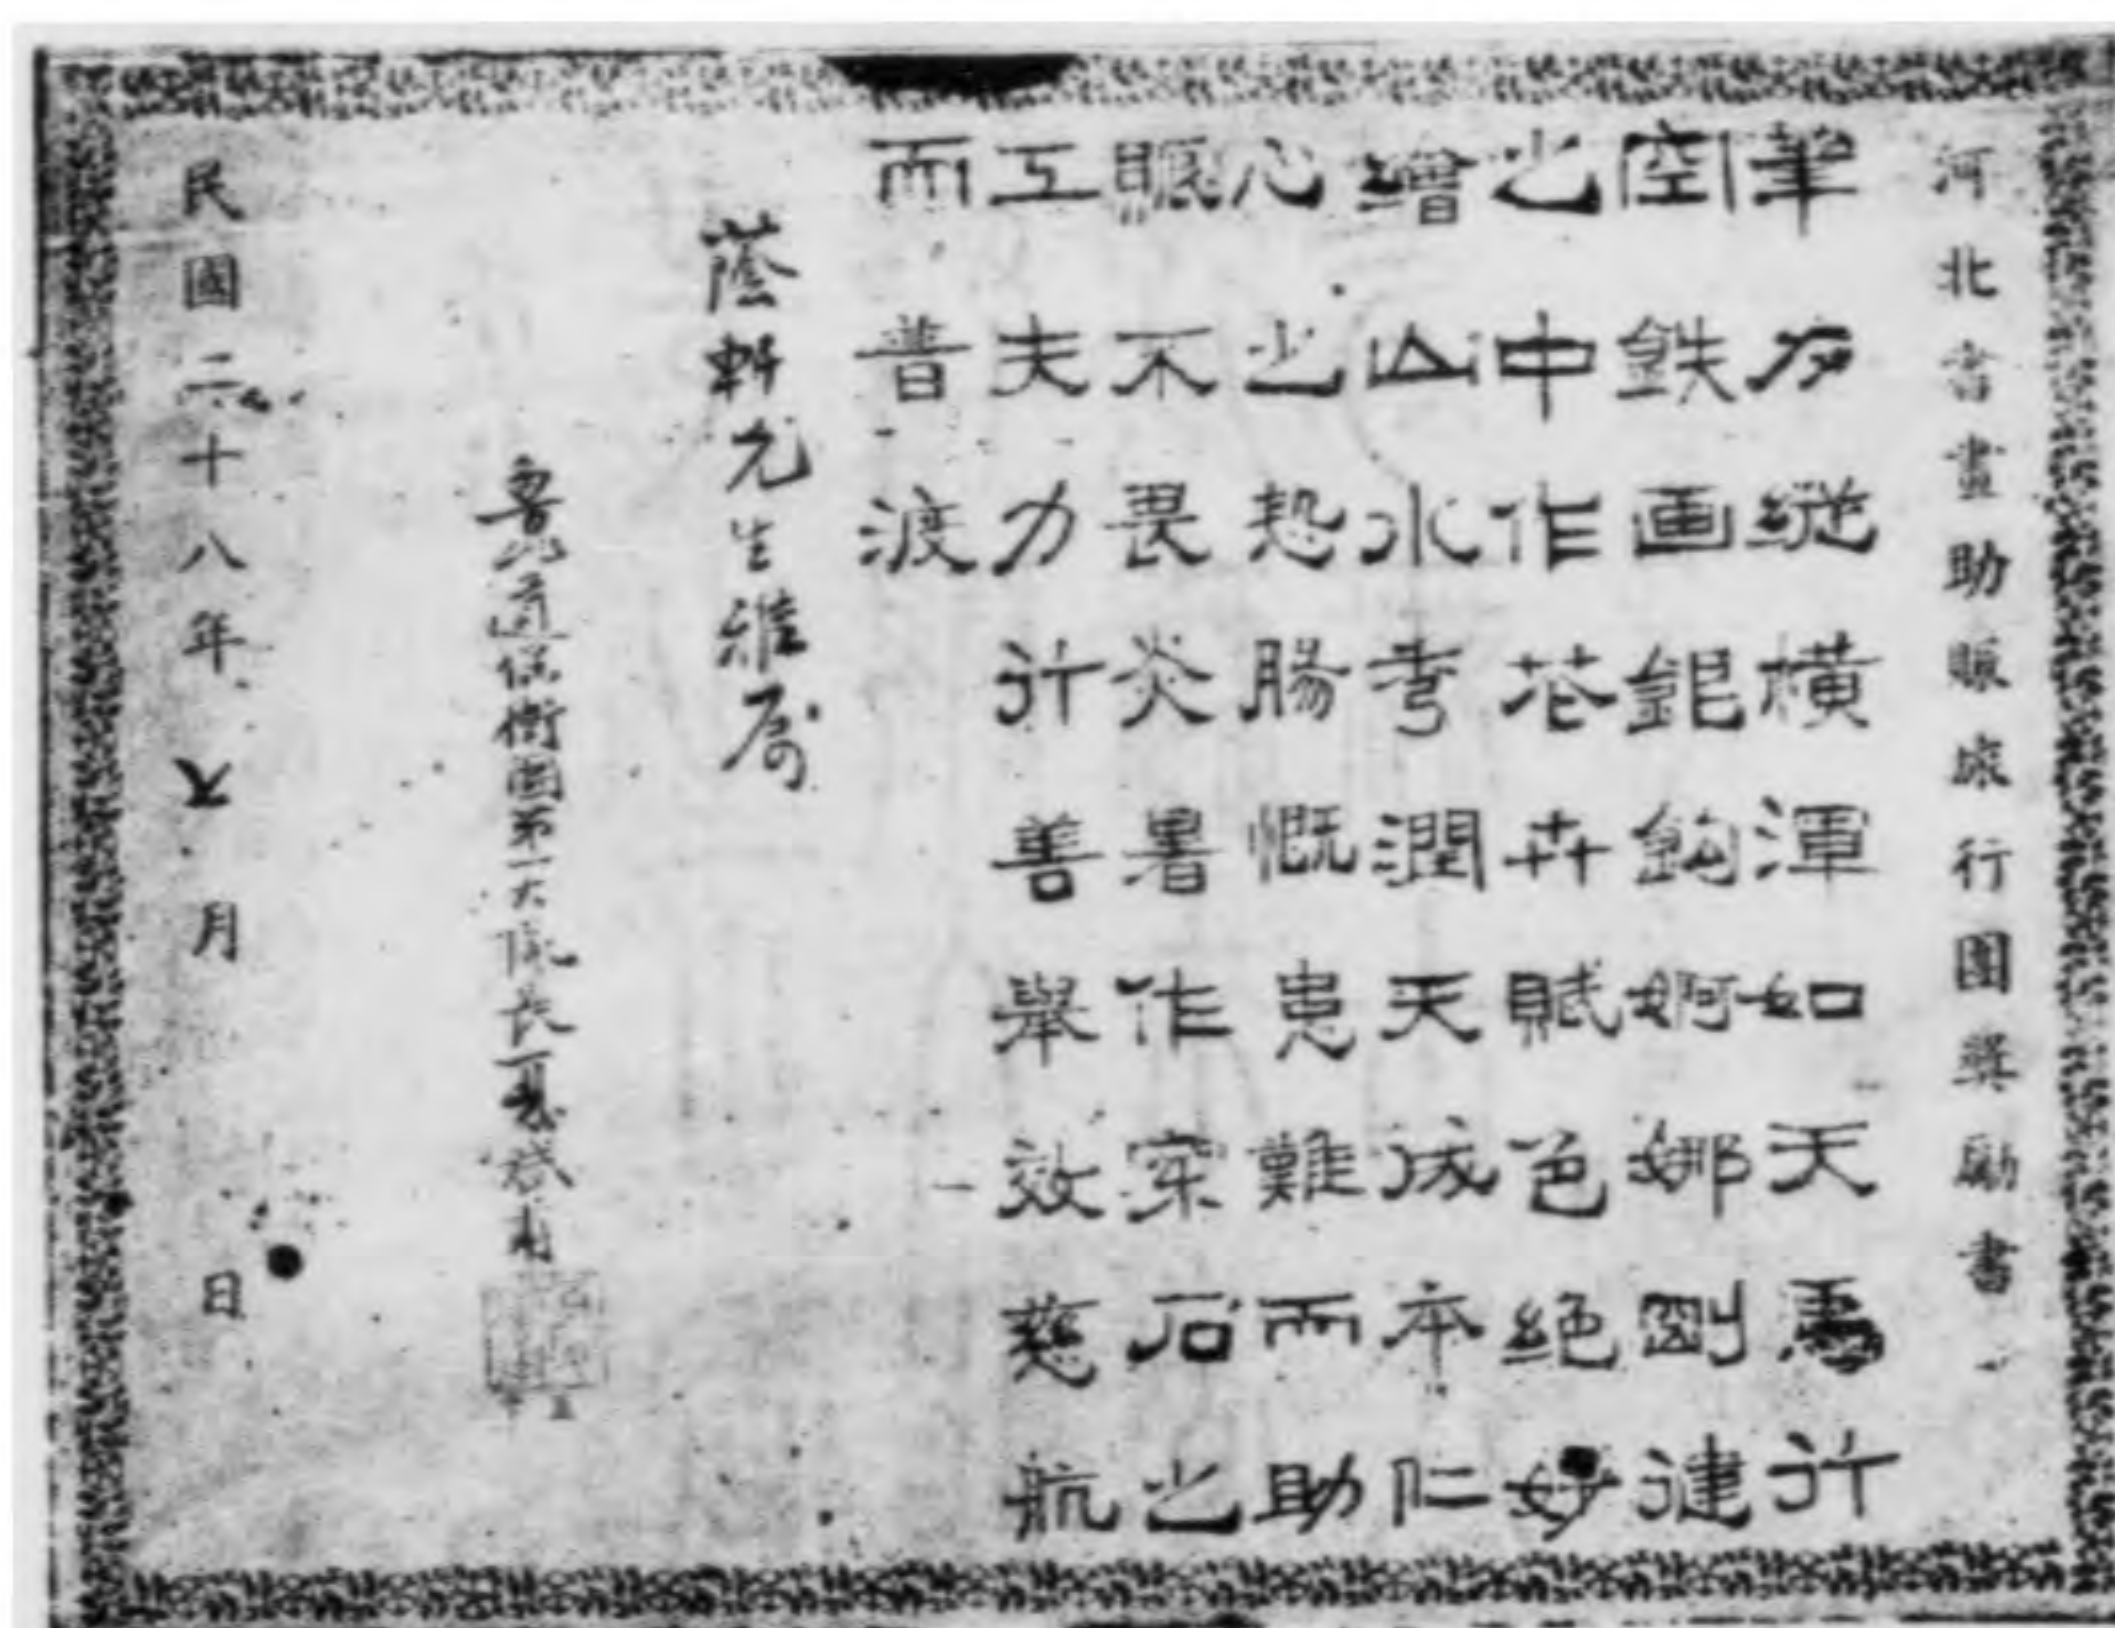 河北書畫助賑旅行團獎勵書
筆力縱橫渾如天馬行
空鉄画銀鈎婀娜剛健
之中作花卉賦色絕妙
繪山水考潤天成本仁
心之熱腸慨患難而助
賑不畏炎暑作案石之
工夫力行善舉效慈航
而普渡
蔭軒先生雅屬
魯北道保衛團第一大隊長
民國二十八年六月 日